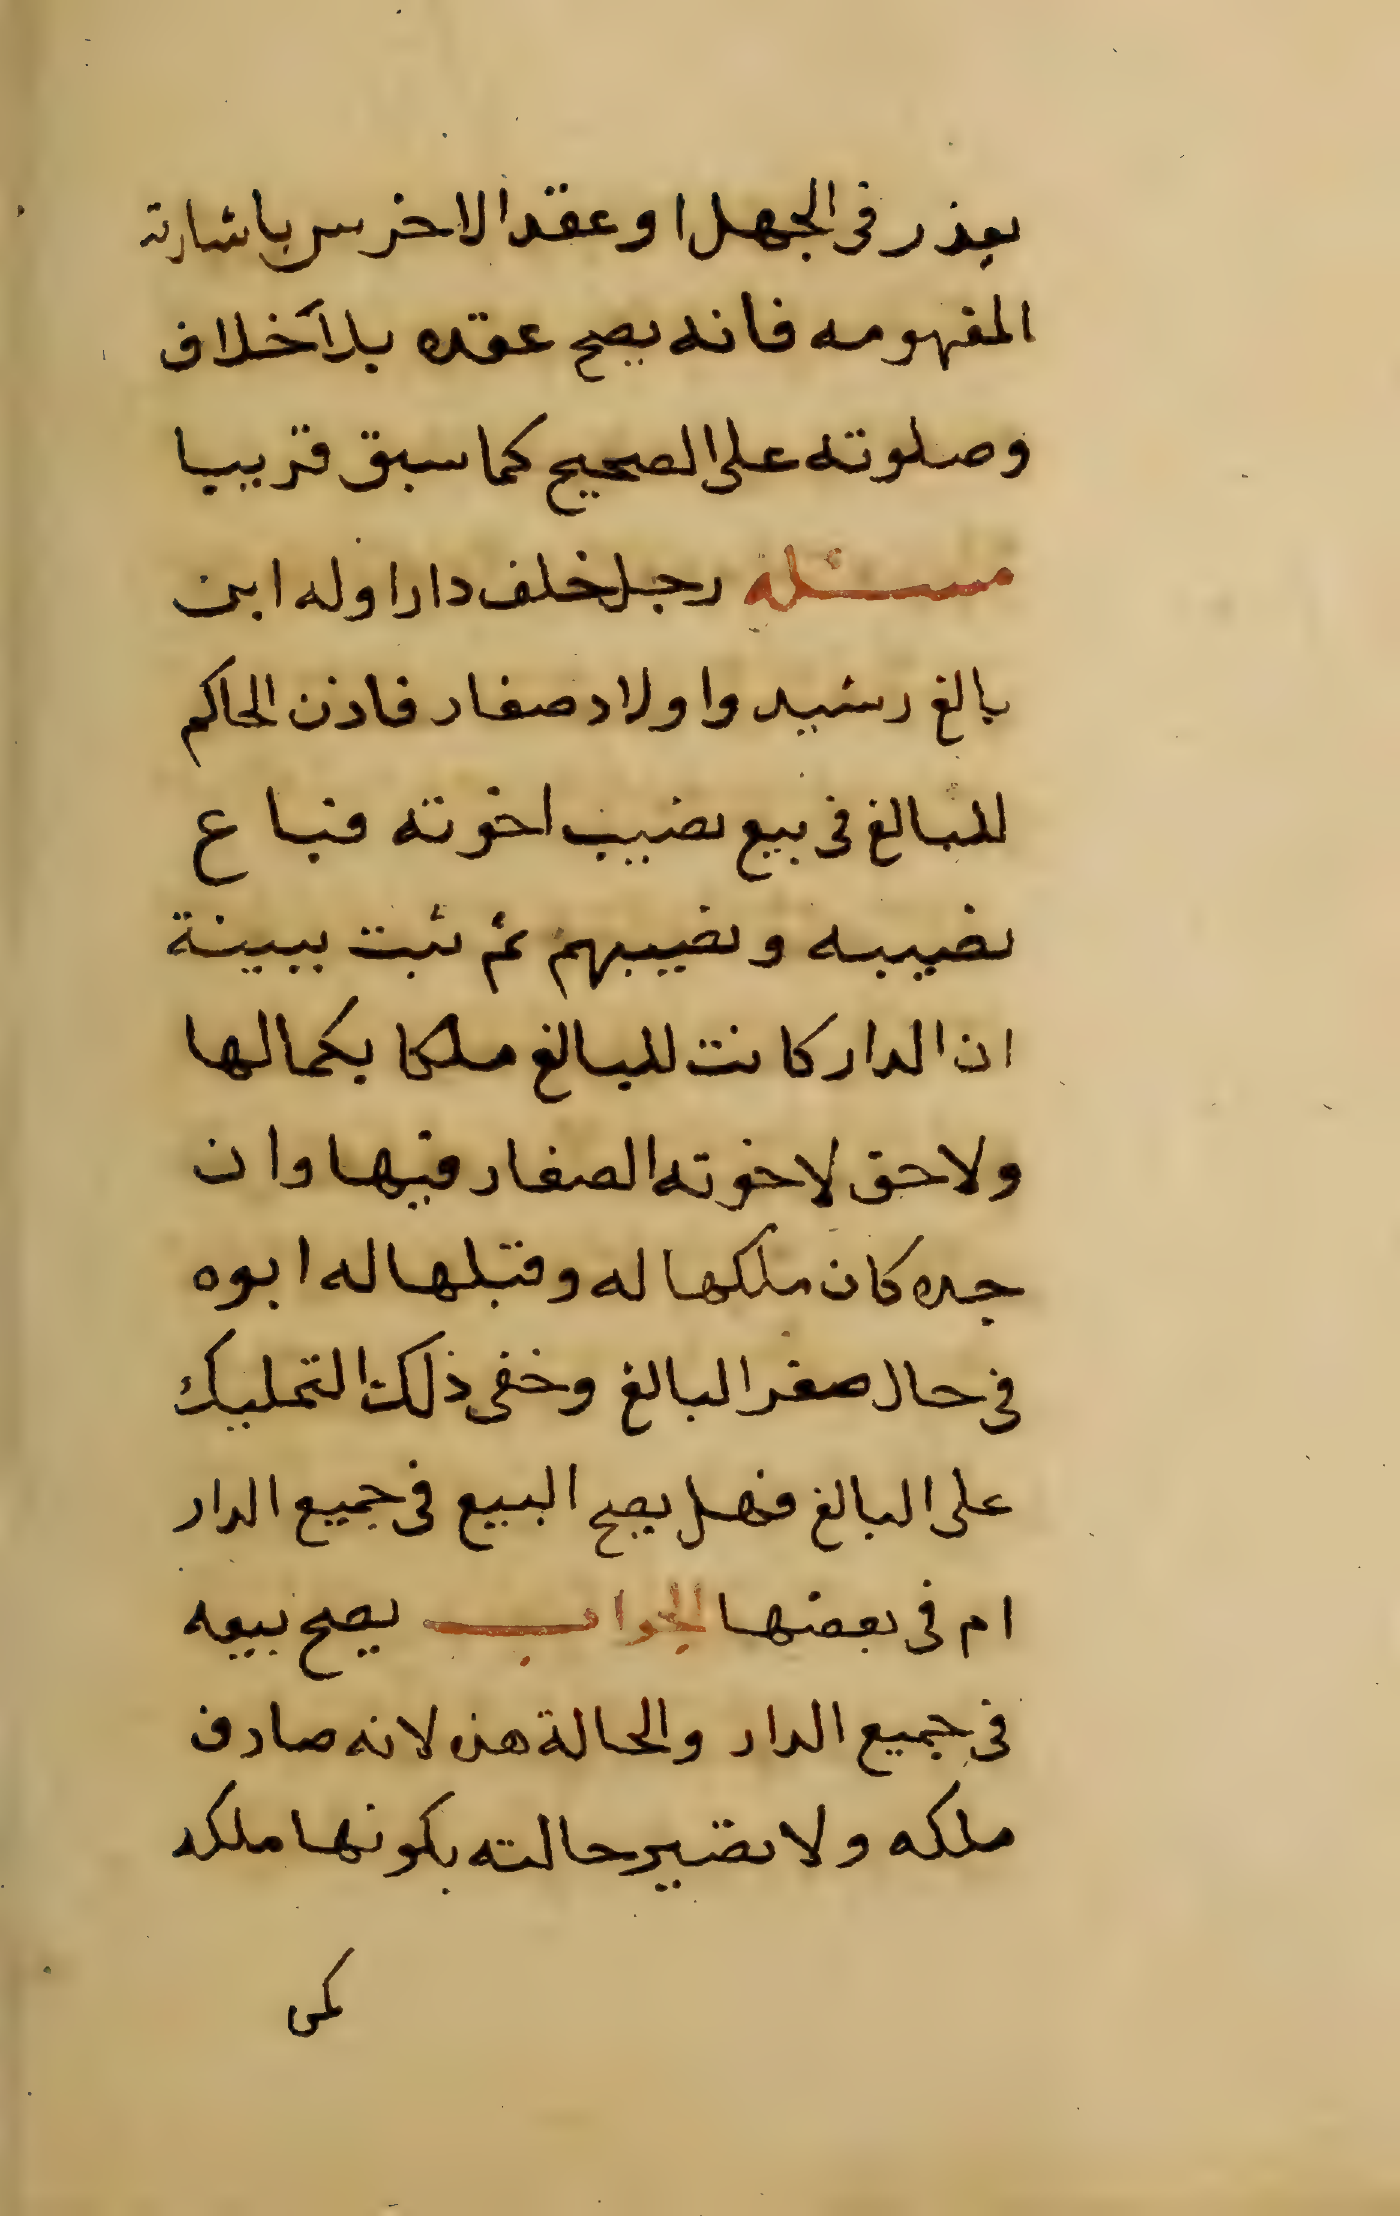 يعذر في الجهل او عقد الاخرس باشارته
المفهومه فانه يصح عقده بلا خلاف
وصلوته على الصحيح كما سبق قريبا
مسئلة رجل خلف دارا وله ابن
بالغ رشيد واولاد صغار فاذن الحاكم
للبالغ في بيع نصيب اخوته فباع
نصيبه ونصيبهم ثم ثبت ببينة
ان الدار كانت للبالغ ملكا بكمالها
ولا حق لاخوته الصغار فيها وان
جده كان ملكها له وقبلها له ابوه
في حال صغر البالغ وخفى ذلك التمليك
على البالغ فهل يصح البيع في جميع الدار
ام في بعضها الجواب يصح بيعه
في جميع الدار والحالة هذه لانه صادف
ملكه ولا تضير حالته بكونها ملكه
كمن